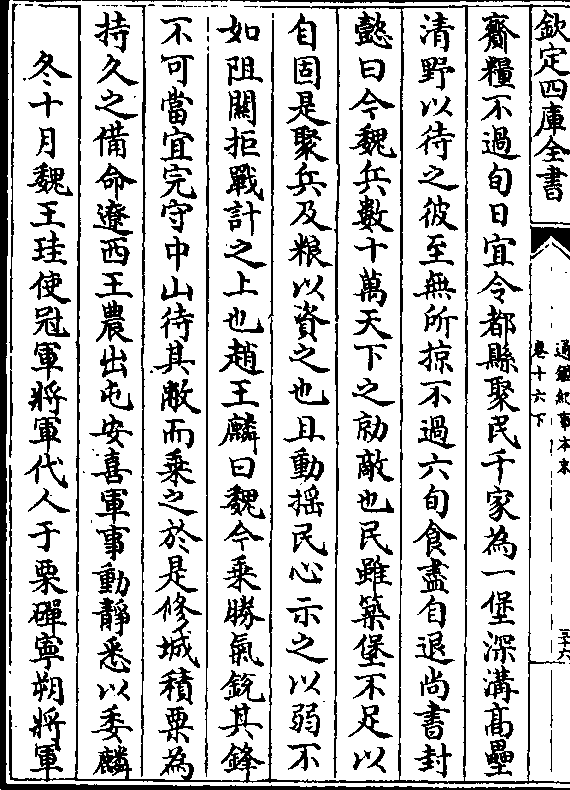 欽定四庫全書
通鑑紀事本末
卷十六下
三六
齎糧不過旬日宜令都縣聚民千家為一堡深溝高壘
清野以待之彼至無所掠不過六旬食盡自退尚書封
懿曰今魏兵數十萬天下之勍敵也民雖築堡不足以
自固是聚兵及粮以資之也且動揺民心示之以弱不
如阻關拒戰計之上也趙王麟曰魏今乗勝氣銳其鋒
不可當宜完守中山待其敝而乗之於是修城積粟為
持久之備命遼西王農出屯安喜軍事動靜悉以委麟
冬十月魏王珪使冠軍將軍代人于栗磾寧朔將軍